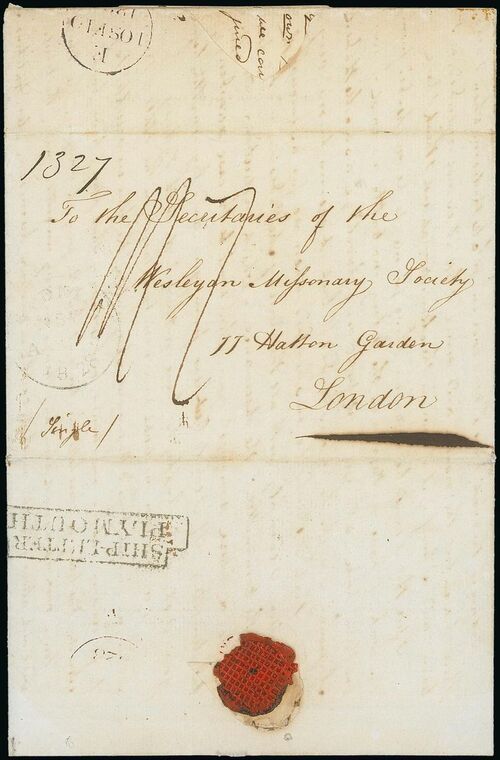 2
own
we can
1327
To the Secretaries of the
Wesleyan Missonary Society
77 Hatton Garden
London
/ Single /
SHIP-LETTER
PLYMOUTH